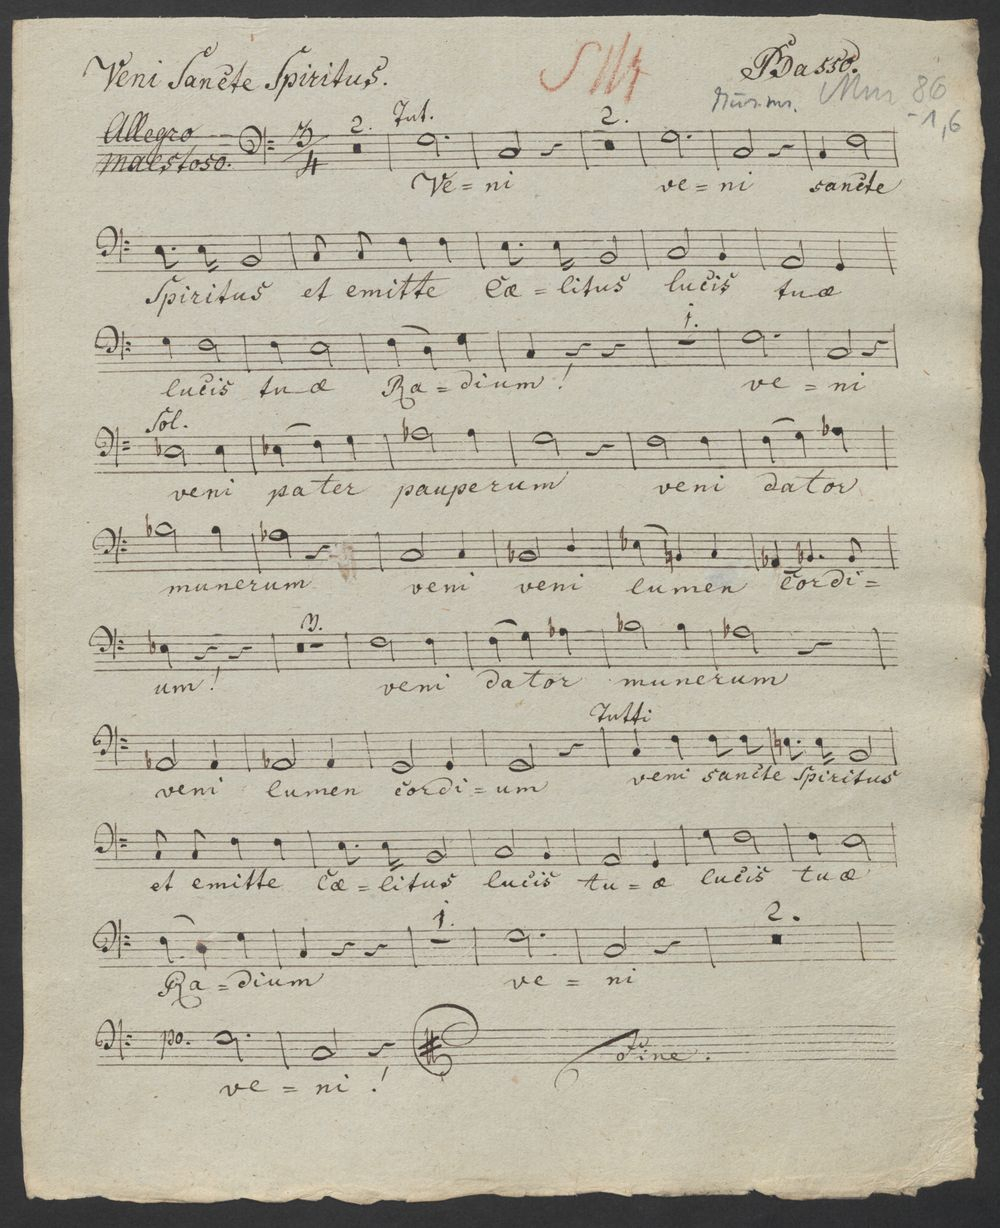 Veni Sancte Spiritus. Basso.
Mus. ms. 86
-1,6
Allegro
maestoso. 3/4 2. Tut. 2.
Ve=ni ve=ni sancte
Spiritus et emitte Cæ=litus lucis tuæ
1.
lucis tuæ Ra=dium! ve=ni
Sol.
veni pater pauperum veni dator
munerum veni veni lumen Cordi=
3.
um! veni dator munerum
Tutti
veni lumen cordi=um veni sancte Spiritus
et emitte Cæ=litus lucis tu=æ lucis tuæ
1. 2.
Ra=dium ve=ni
po. Fine.
ve=ni!